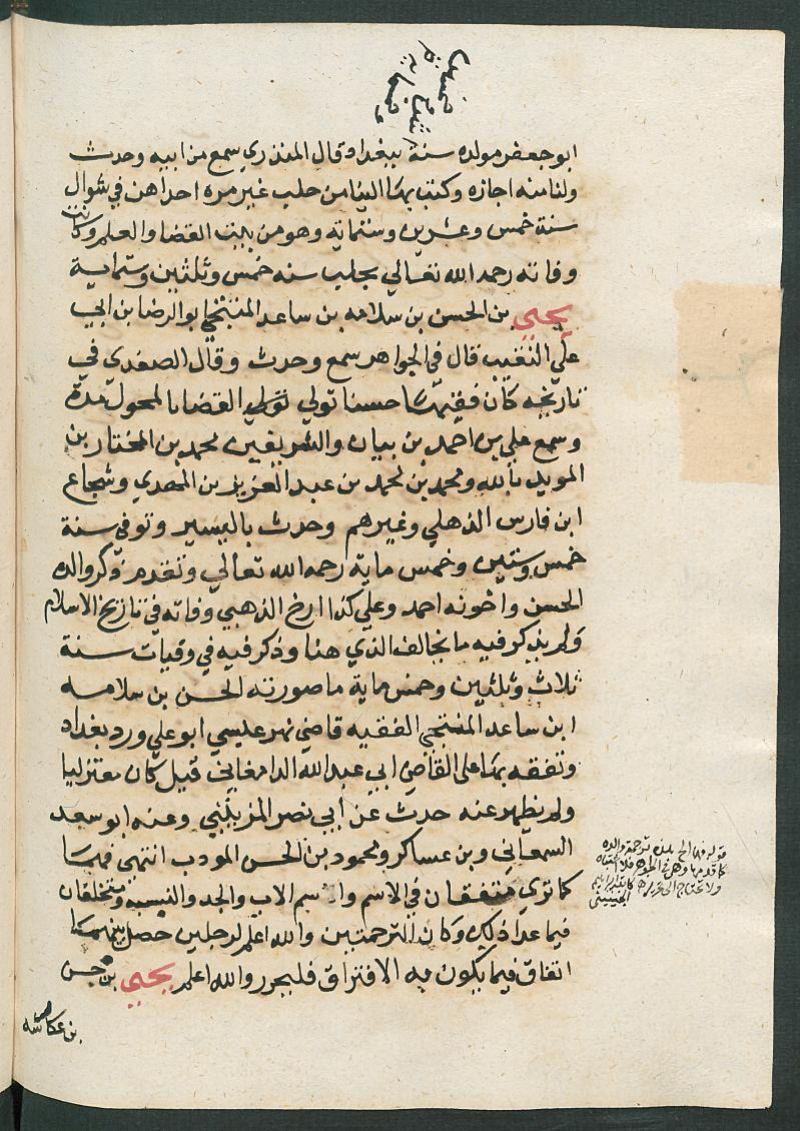 ابو جعفر مولده سنة ببغداد قال المنذري سمع من ابيه وحدث
ولنا منه اجازه وكتب بها الينا من حلب غير مره احداهن في شوال
سنة خمس وعشرين وستماية وهو من بيت القضا والعلم وكانت
وفاته رحمه الله تعالي بحلب سنه خمس وثلثين وستماية
يحيي بن الحسن بن سلامه بن ساعد المنبجي ابو الرضا بن ابي
علي النقيب قال في الجواهر سمع وحدث وقال الصفدي في
تاريخه كان فقيها حسنا تولي تولي القضا بالمحول مدة
وسمع علي بن احمد بن بيان والشريفين محمد بن المختار بن
المويد بالله ومحمد بن محمد بن عبد العزيز بن المهدي وشجاع
ابن فارس الذهلي وغيرهم وحدث باليسير وتوفي سنة
خمس وستين وخمس ماية رحمه الله تعالي وتقدم ذكر والده
الحسن واخوته احمد وعلي كذا ارخ الذهبي وفاته في تاريخ الاسلام
ولم يذكر فيه ما يخالف الذي هنا وذكر فيه في وفيات سنة
ثلاث وثلثين وخمس ماية ما صورته الحسن بن سلامه
ابن ساعد المنبجي الفقيه قاضي نهر عيسي ابو علي ورد بغداد
وتفقه بها علي القاضي ابي عبد الله الدامغاني قيل كان معتزليا
ولم يظهر عنه حدث عن ابي نصر الزينبي وعنه ابو سعد
السمعاني وبن عساكر ومحمود بن الحسن المودب انتهى فهما
كما تري متفقان في الاسم واسم الاب والجد والنسبة ومختلفان
فيما عدا ذلك وكان الترجمتين والله اعلم لرجلين حصل بينهما
اتفاق فيما يكون فيه الافتراق فليحرر والله اعلم يحيي بن حسن
بن عكاشه
قوله فهما الخ هذه ترجمة والده